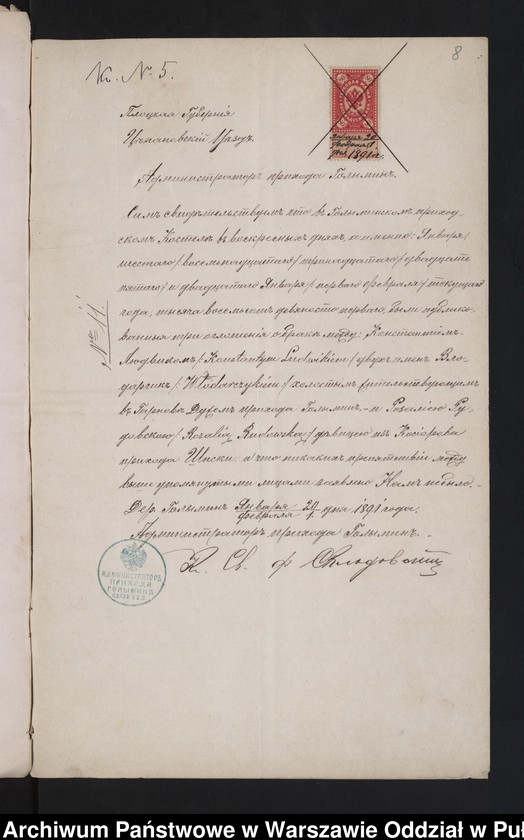 К. № 5.
8
Плоцкая Губернія
Цѣхановскій Уѣздъ.
Января 20
Февраля 1
дня 1891 г.
Администраторъ прихода Голыминъ.
Симъ свидѣтельствуемъ что въ Голыминскомъ приход-
скомъ Костелѣ въ воскресныхъ дняхъ, а именно: Января
шестаго /: восемнадцатаго :/ тринадцатаго /: двадцать
пятаго :/ и двадцатаго Января /: перваго февраля :/ текущаго
года, тысяча восемьсотъ девяносто перваго, были публико-
ванныя три оглашенія о бракѣ между: Константіемъ-
Людвикомъ /: Konstantym Ludwikiem :/ двухъ именъ Вло-
дарчикъ /: Włodarczykiem :/ холостымъ жительствующимъ
въ Гарново Дужемъ прихода Голыминъ - и Розаліею Ру-
довскою /: Rozalią Rudowską :/ дѣвицею изъ Косіорова
прихода Шиски. и что никакихъ препятствій между
выше упомянутыми лицами заявлено Намъ не было.-
Дер. Голыминъ Января 20 / Февраля 1 дня 1891 года.
Администраторъ прихода Голыминъ.-
К. Св.
№ 11
АДМИНИСТРАТОРЪ
ПРИХОДА
ГОЛЫМИНЪ
Archiwum Państwowe w Warszawie Oddział w Puł